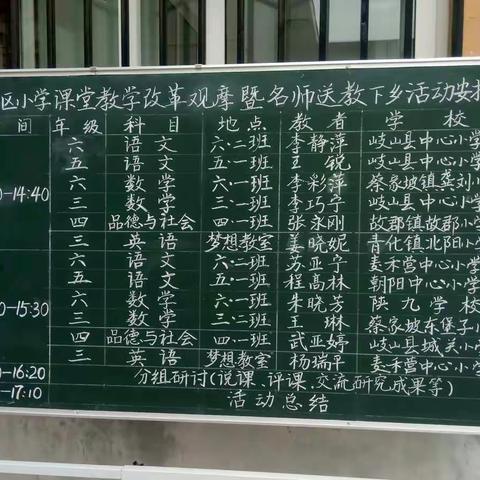 区小学课堂教学改革观摩暨名师送教下乡活动安排
间 年级 科目 地点 教者 学校
六 语文 六·二班 李静萍 岐山县中心小学
五 语文 五·一班 王锐 岐山县中心小学
-14:40 六 数学 六·一班 李彩萍 蔡家坡镇龚刘小
三 数学 三·一班 李巧宁 岐山县中心小学
四 品德与社会 四·一班 张永刚 故郡镇故郡小学
三 英语 梦想教室 姜晓妮 青化镇北阳小学
六 语文 六·二班 苏亚宁 麦禾营中心小学
五 语文 五·一班 程高林 朝阳中心小学
0-15:30 六 数学 六·一班 朱晓芳 陕九学校
三 数学 三·二班 王琳 蔡家坡东堡子小
四 品德与社会 四·一班 武亚婷 岐山县城关小学
三 英语 梦想教室 杨瑞早 麦禾营中心小学
0-16:20 分组研讨(说课、评课、交流研究成果等)
-17:10 活动总结